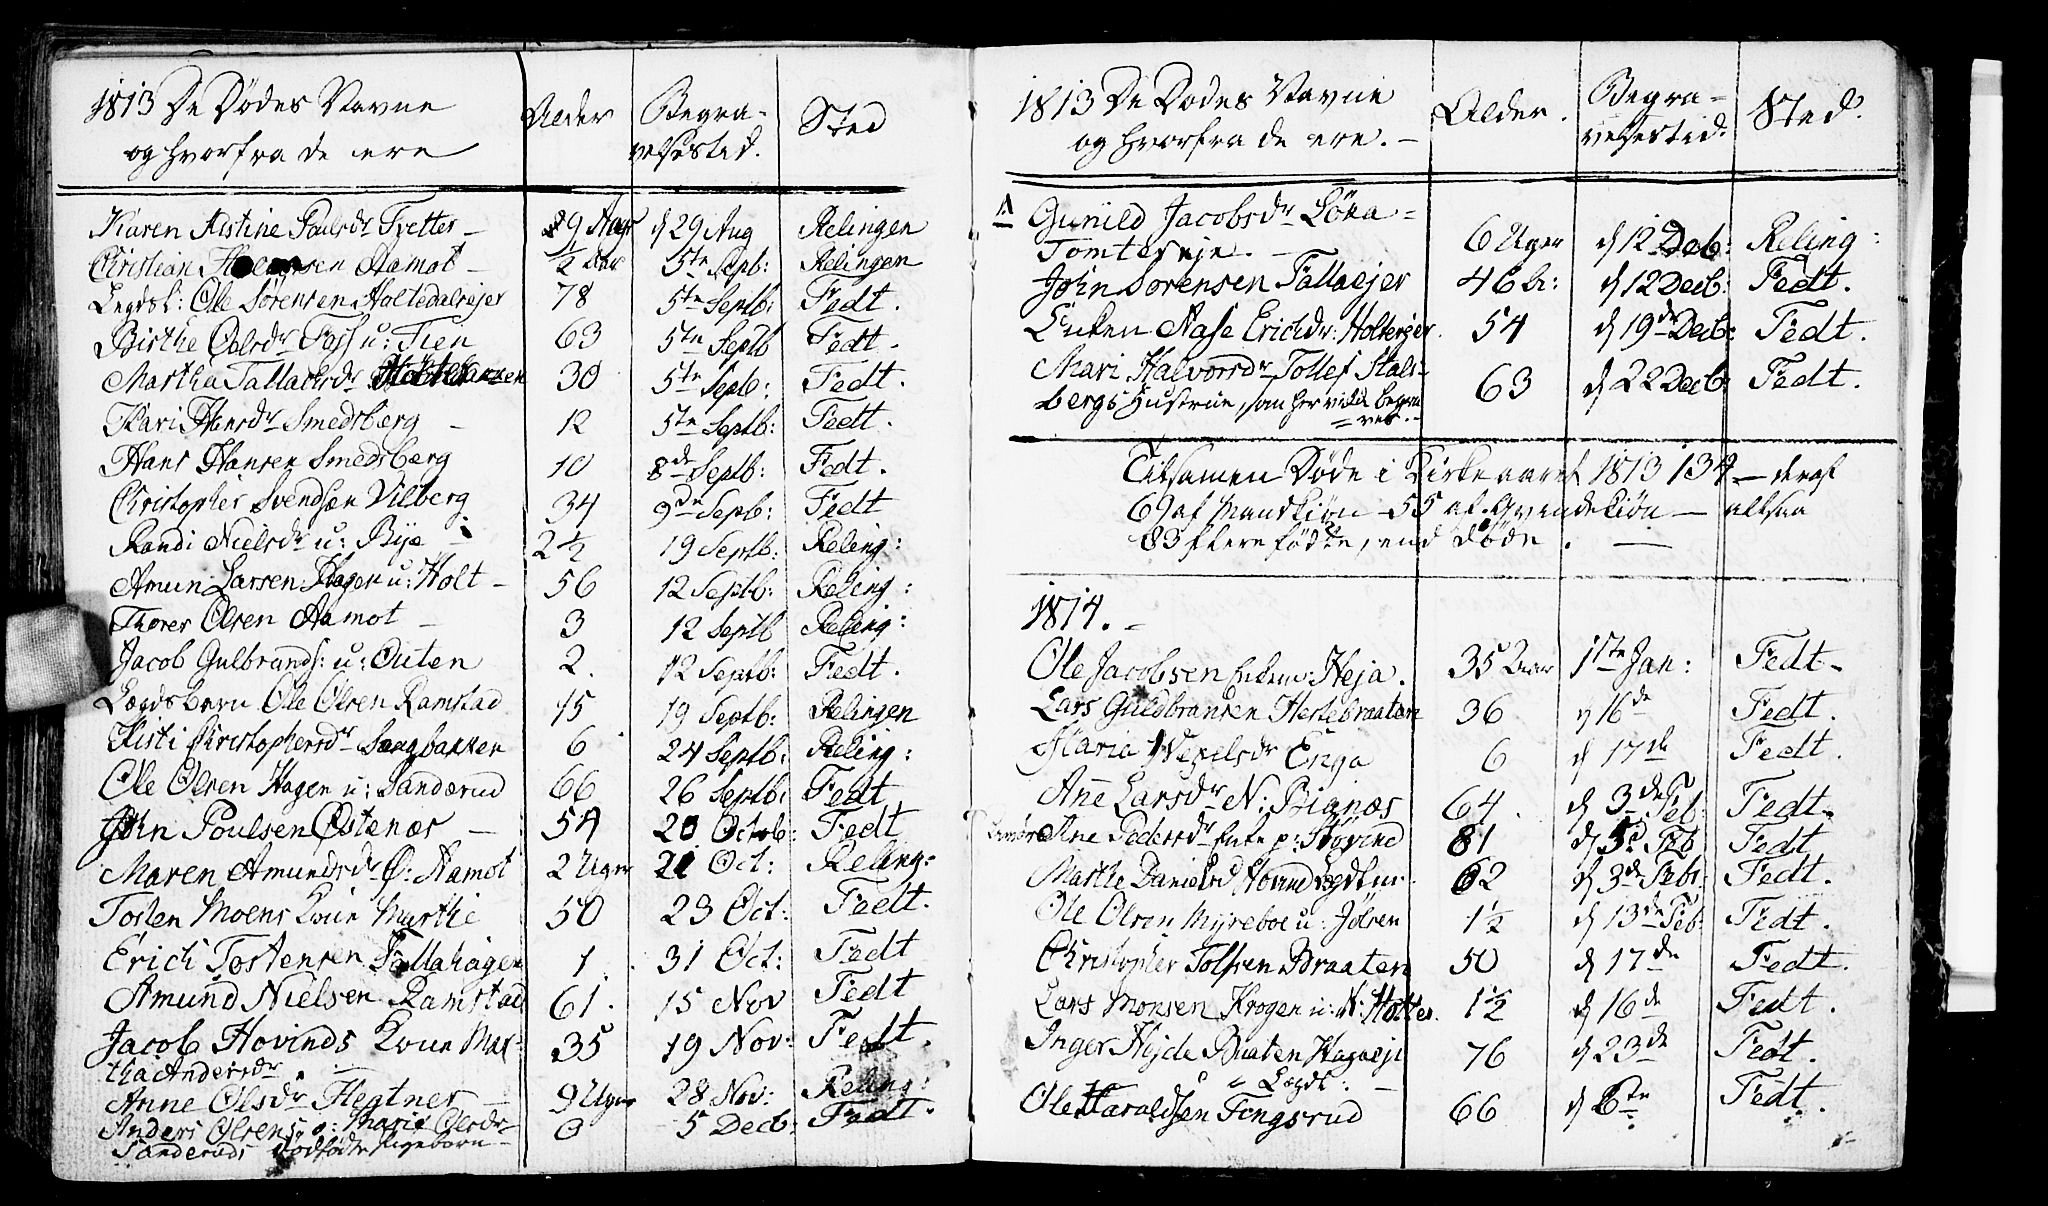 1813 De Dødes Navne
og hvorfra de ere
Alder
Begra-
velsestid.
Sted
Karen Kistine Poulsdr Tvetter - 29 d 29 Aug Relingen
Christian Aamot - ½ Aar 5te Septb: Relingen
Legdsl: Ole Sørensen Holtedalsejer 78 5te Septb: Fedt.
Birthe Olsdr u: Tien 63 5te Septb Fedt.
Martha Tallachsdr 30 5te Septb: Fedt.
Kari Hansdr Smedsberg - 12 5te Septb: Fedt.
Hans Hansen Smedsberg 10 8de Septb: Fedt.
Christopher Svendsen Vilberg 34 9de Septb: Fedt
Randi Nielsdr u: Bye 2½ 19 Septb: Reling:
Amun Larsen Hagen u: Holt - 56 12 Septb: Reling:
Thorer Olsen Aamot - 3 12 Septb Reling:
Jacob Gulbrands: u: Outen 2. 12 Septb: Fedt.
Legdsbarn Ole Olsen Ramstad 15 19 Septb: Relingen
Kisti Christophersdr Sangbakken 6 24 Septb: Reling:
Ole Olsen Hagen u: Sanderud 66 26 Septb: Fedt
John Poulsen Østenær - 54 20 Octob: Fedt
Maren Amundsdr Ø: Aamot 2 Uger 21 Oct: Reling:
Tosten Moens Kone Marthe 50 23 Oct: Fedt.
Erich Tostensen Tallahagen 1 31 Oct: Fedt
Amund Nielsen Ramstad 61. 15 Nov Fedt
Jacob Hovinds Kone Mar- 35 19 Nov: Fedt.
tha Andersdr
Anne Olsdr Hegtner - 9 Uger 28 Nov: Reling:
Anders Olsens o: Marie Olsdr 0 5 Decb: Fedt.
Sanderuds dødfødte Pigebarn -
1813 De Dødes Navne
og hvorfra de ere. -
Alder.
Begra-
velsestid.
Sted.
Gunild Jacobsdr Løka-
Tomteseje. - 6 Uger d 12 Decb: Reling:
John Sørensen Tallaejer 46 d 12 Decb: Fedt.
Enken Aase Erichdr: Holterejer 54 d 19de Decb: Fedt.
Mari Halvorsdr Tollef Stals-
bergs Hustrue, som her vilde begra- 63 d 22 Decb: Fedt.
ves.-
Tilsamen Døde i Kirkeaaret 1813 134 - deraf
69 af Mandkiøn - 55 af Qvindekiøn - altsaa
83 flere fødte, end døde.
1814. -
Ole Jacobsen Heja. 35 Aar 1ste Jan: Fedt-
Lars Guldbransen Hestebraaten 36 d 16de Fedt.
Maria Wexelsdr Enga 6 d 17de Fedt.
Ane Larsdr N: Bianæs 64. d 3de Feb: Fedt.
Ane Pedersdr Enke p: Støvind 81 d Feb Fedt
Marthe Danielsd Hovind 62 d 3de Feb: Fedt.
Ole Olsen Myreboe u: Jølsen 1½ d 13de Feb: Fedt.
Christopher Tolfsen Braaten 50 d 17de Fedt.
Lars Monsen Krogen u: N: Holter. 1½ d 16de Fedt.
Inger Hejde Braaten Hagaeje 76 d 23de Fedt.
Legdsl: -
Ole Haraldsen Tingsrud 66 d 6te Fedt.